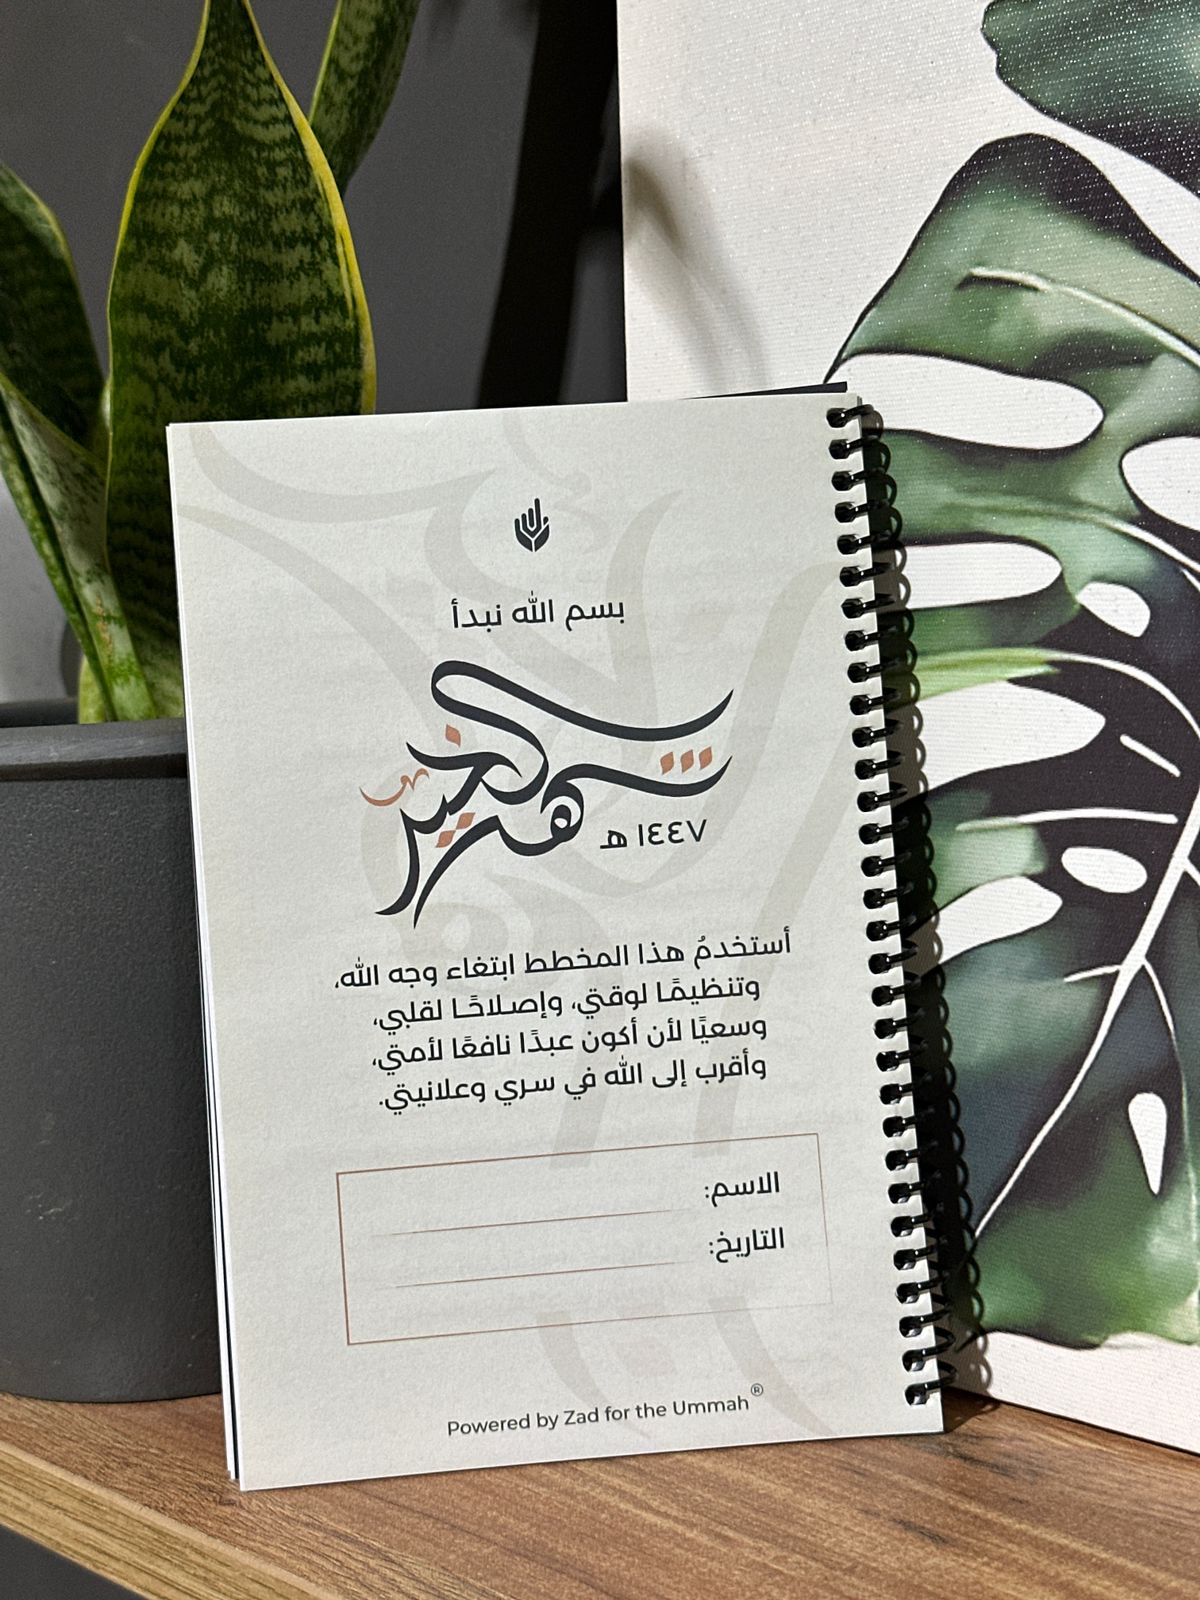 بسم الله نبدأ
شهر الخير
١٤٤٧ هـ
أستخدمُ هذا المخطط ابتغاء وجه الله،
وتنظيمًا لوقتي، وإصلاحًا لقلبي،
وسعيًا لأن أكون عبدًا نافعًا لأمتي،
وأقرب إلى الله في سري وعلانيتي.
الاسم:
التاريخ:
Powered by Zad for the Ummah®